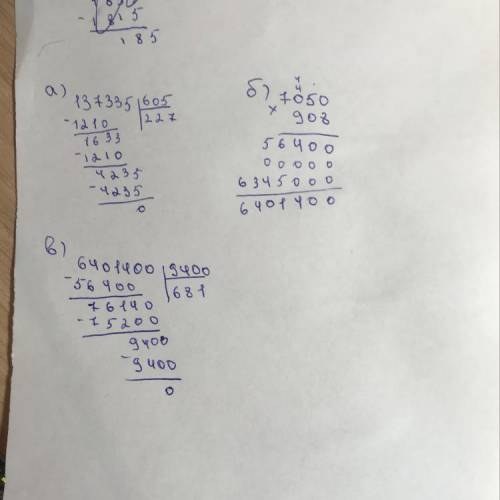 - 1815
185
а)
137335 605
- 1210 227
1633
- 1210
4235
- 4235
0
б)
4
4
× 7050
908
56400
00000
6345000
6401400
в)
6401400 9400
- 56400 681
76140
- 75200
9400
- 9400
0